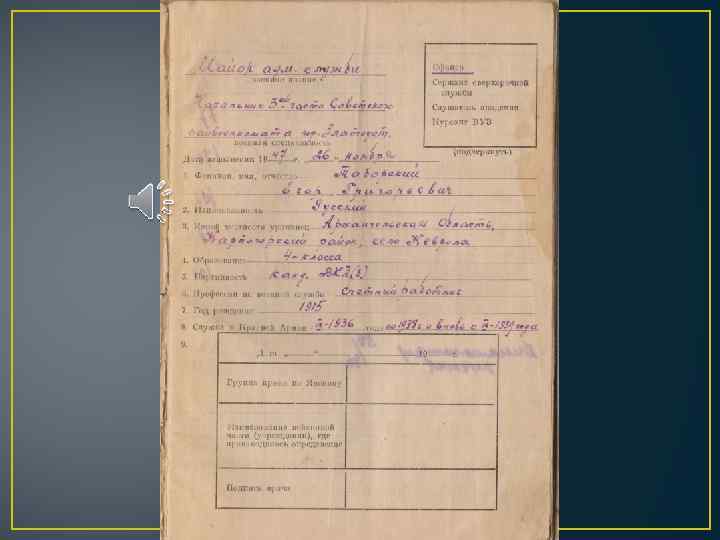 Майор адм. службы
военное звание
Офицер
Сержант сверхсрочной
службы
Слушатель академии
Курсант ВУЗ
(подчеркнуть)
Начальник 3ей части Советского
райвоенкомата гор. Златоуст.
военная специальность
Дата заполнения 1947 г. „26“ ноября
1. Фамилия, имя, отчество Таборский
Егор Григорьевич
2. Национальность Русский
3. Какой местности уроженец Архангельской Область,
Карпогорский район, село Кеврола
4. Образование 4-класса
5. Партийность канд. ВКП(б)
6. Профессия до военной службы Счетный работник
7. Год рождения 1915
8. Служба в Красной Армии с 1936 года по 1938 г. и вновь с
9.
Дата „ “ 19
Группа крови по Янскому
Наименование войсковой
части (учреждения), где
производилось определение
Подпись врача